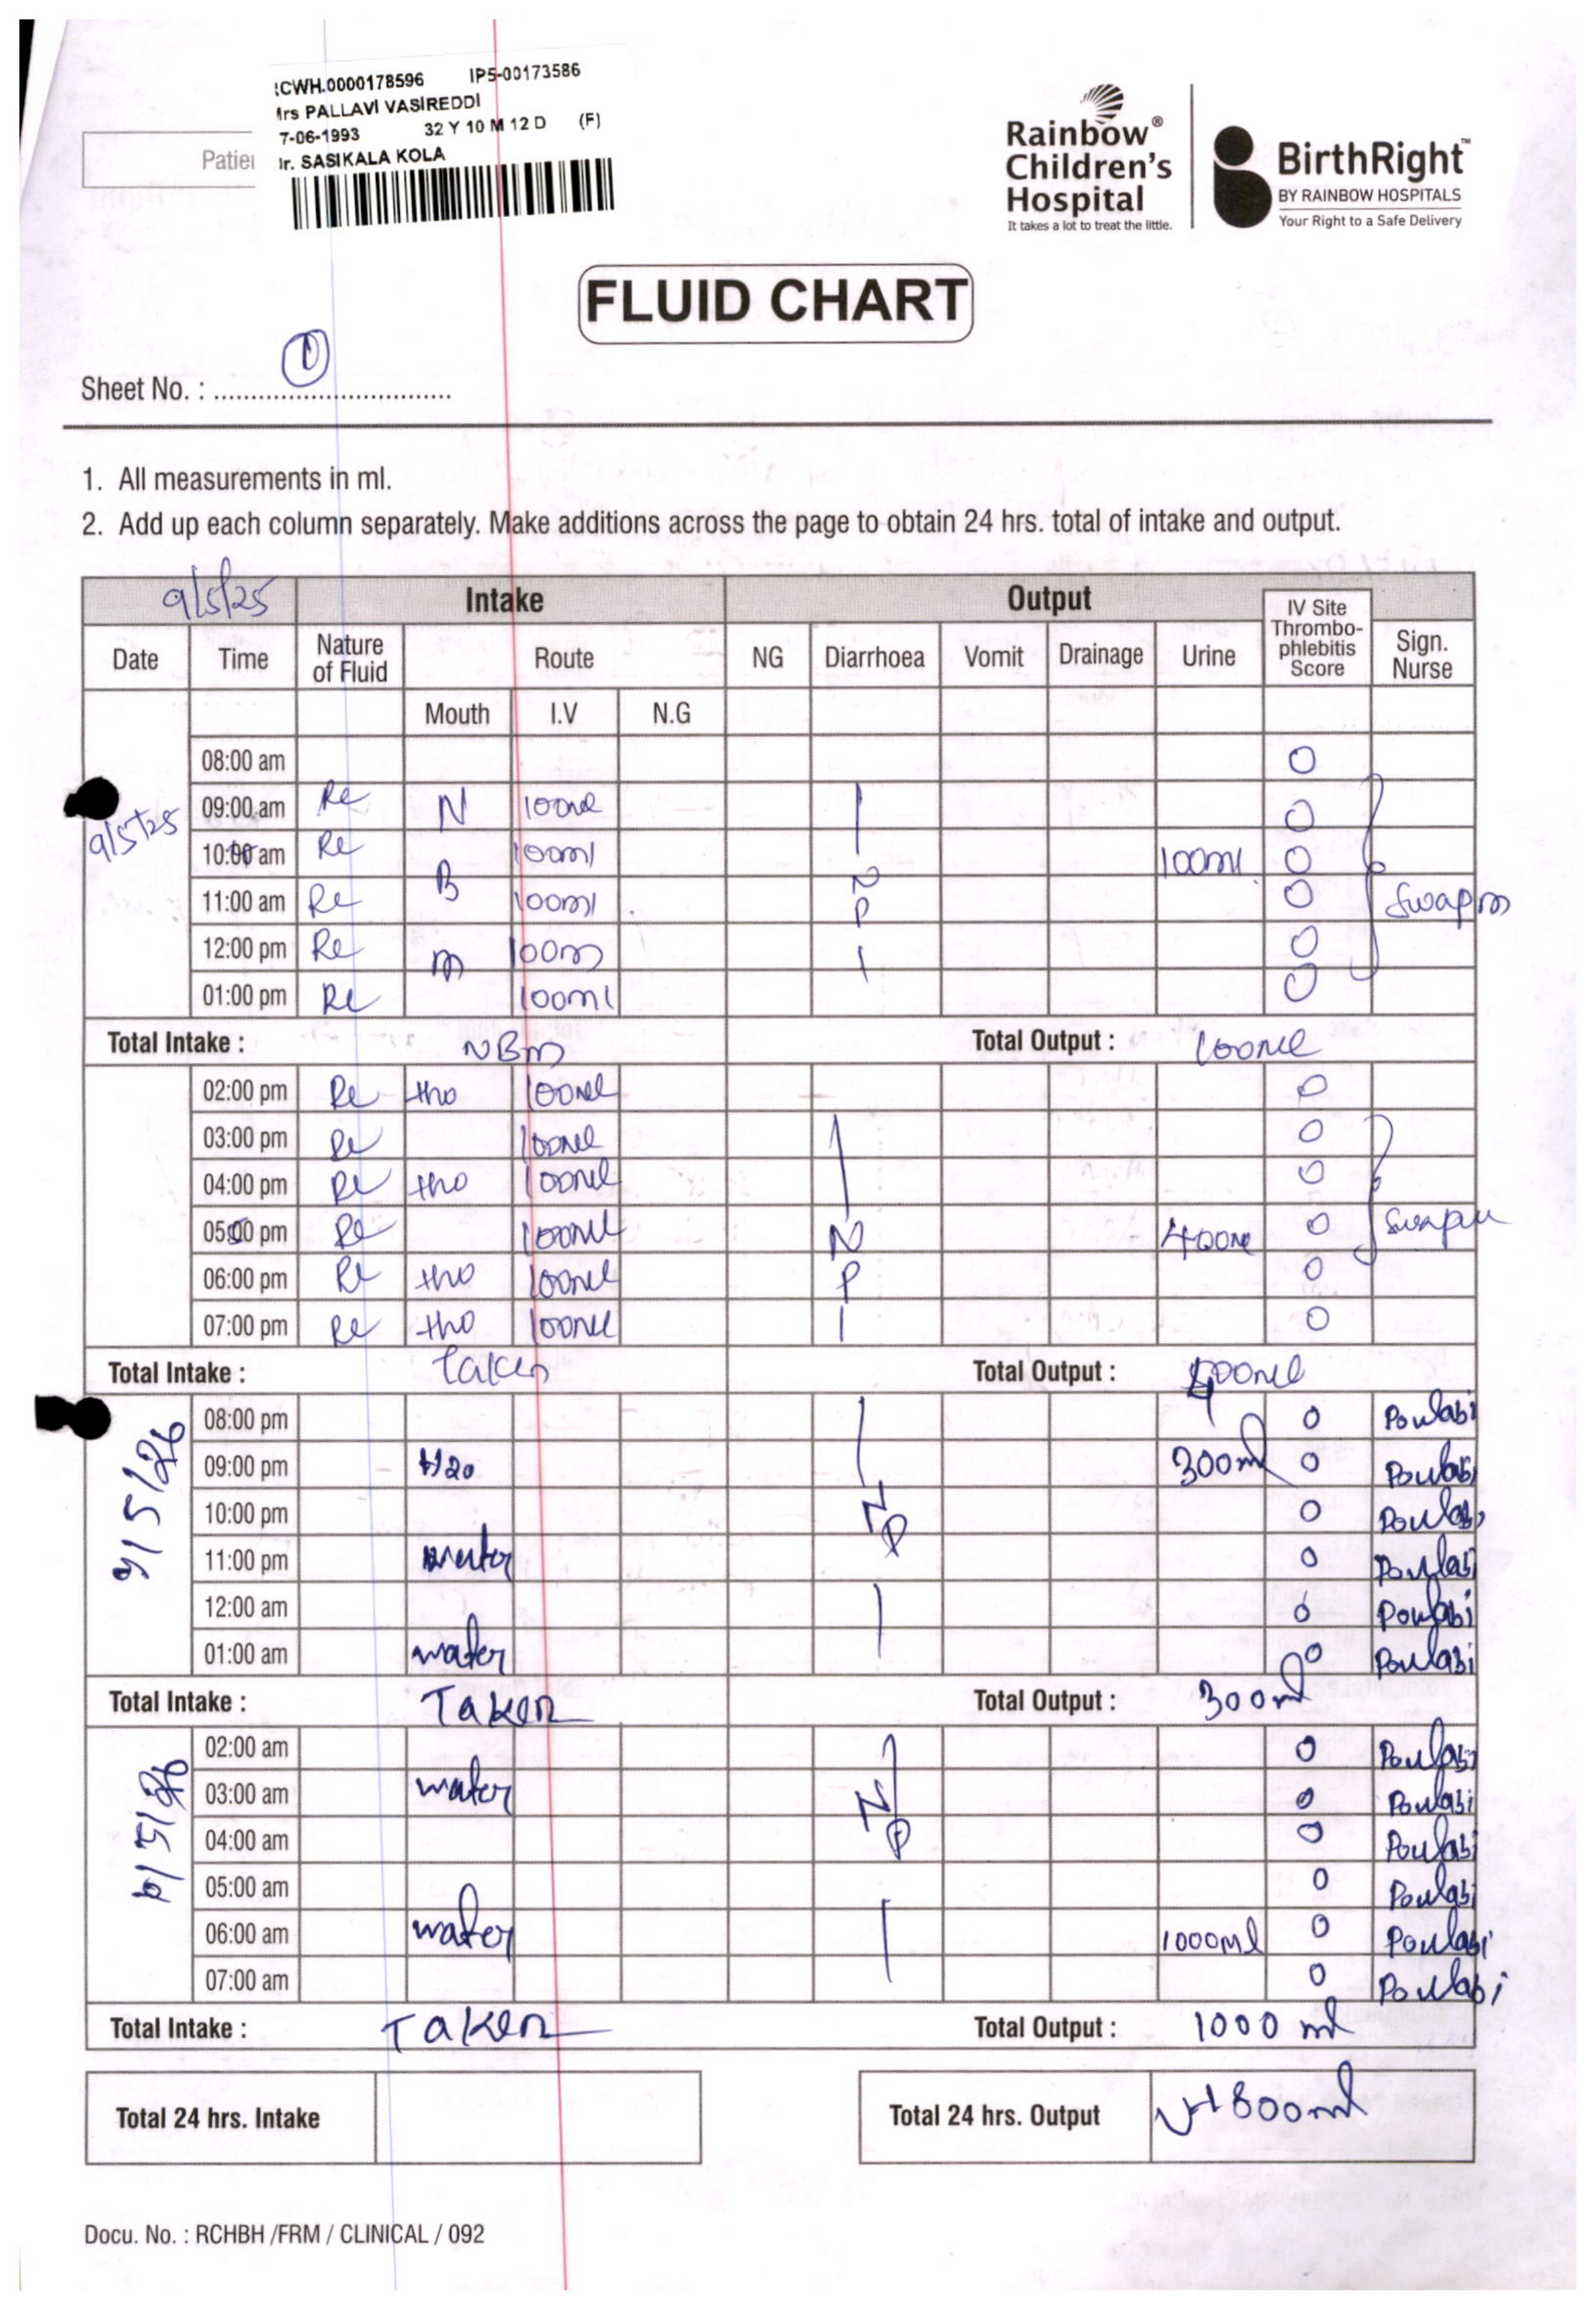 :CWH.0000178596 IP5-00173586
Mrs PALLAVI VASIREDDI
7-06-1993 32 Y 10 M 12 D (F)
Dr. SASIKALA KOLA
Patie
Rainbow®
Children's
Hospital
It takes a lot to treat the little.
BirthRight™
BY RAINBOW HOSPITALS
Your Right to a Safe Delivery
FLUID CHART
Sheet No. : 1
1. All measurements in ml.
2. Add up each column separately. Make additions across the page to obtain 24 hrs. total of intake and output.
9/5/25 Intake Output IV Site Thrombo-phlebitis Score
Date Time Nature of Fluid Route NG Diarrhoea Vomit Drainage Urine Sign. Nurse
Mouth I.V N.G
08:00 am 0
9/5/25 09:00 am RL N 100ml 0
10:00 am RL 100ml 100ml 0
11:00 am RL B 100ml P 0 Swapna
12:00 pm RL m 100m 0
01:00 pm RL 100ml 0
Total Intake : NBm Total Output : 100ml
02:00 pm RL H2O 100ml 0
03:00 pm RL 100ml 0
04:00 pm RL H2O 100ml 0
05:00 pm RL 100ml N 400ml 0 Swapna
06:00 pm RL H2O 100ml P 0
07:00 pm RL H2O 100ml 0
Total Intake : Taken Total Output : 400ml
9/5/26 08:00 pm 0 Poulabi
09:00 pm H2O 300ml 0 Poulabi
10:00 pm NP 0 Poulabi
11:00 pm water 0 Poulabi
12:00 am 0 Poulabi
01:00 am water 0 Poulabi
Total Intake : Taken Total Output : 300ml
02:00 am 0 Poulabi
03:00 am water NP 0 Poulabi
04:00 am 0 Poulabi
05:00 am 0 Poulabi
06:00 am water 1000ml 0 Poulabi
07:00 am 0 Poulabi
Total Intake : Taken Total Output : 1000 ml
Total 24 hrs. Intake Total 24 hrs. Output 1800ml
Docu. No. : RCHBH /FRM / CLINICAL / 092